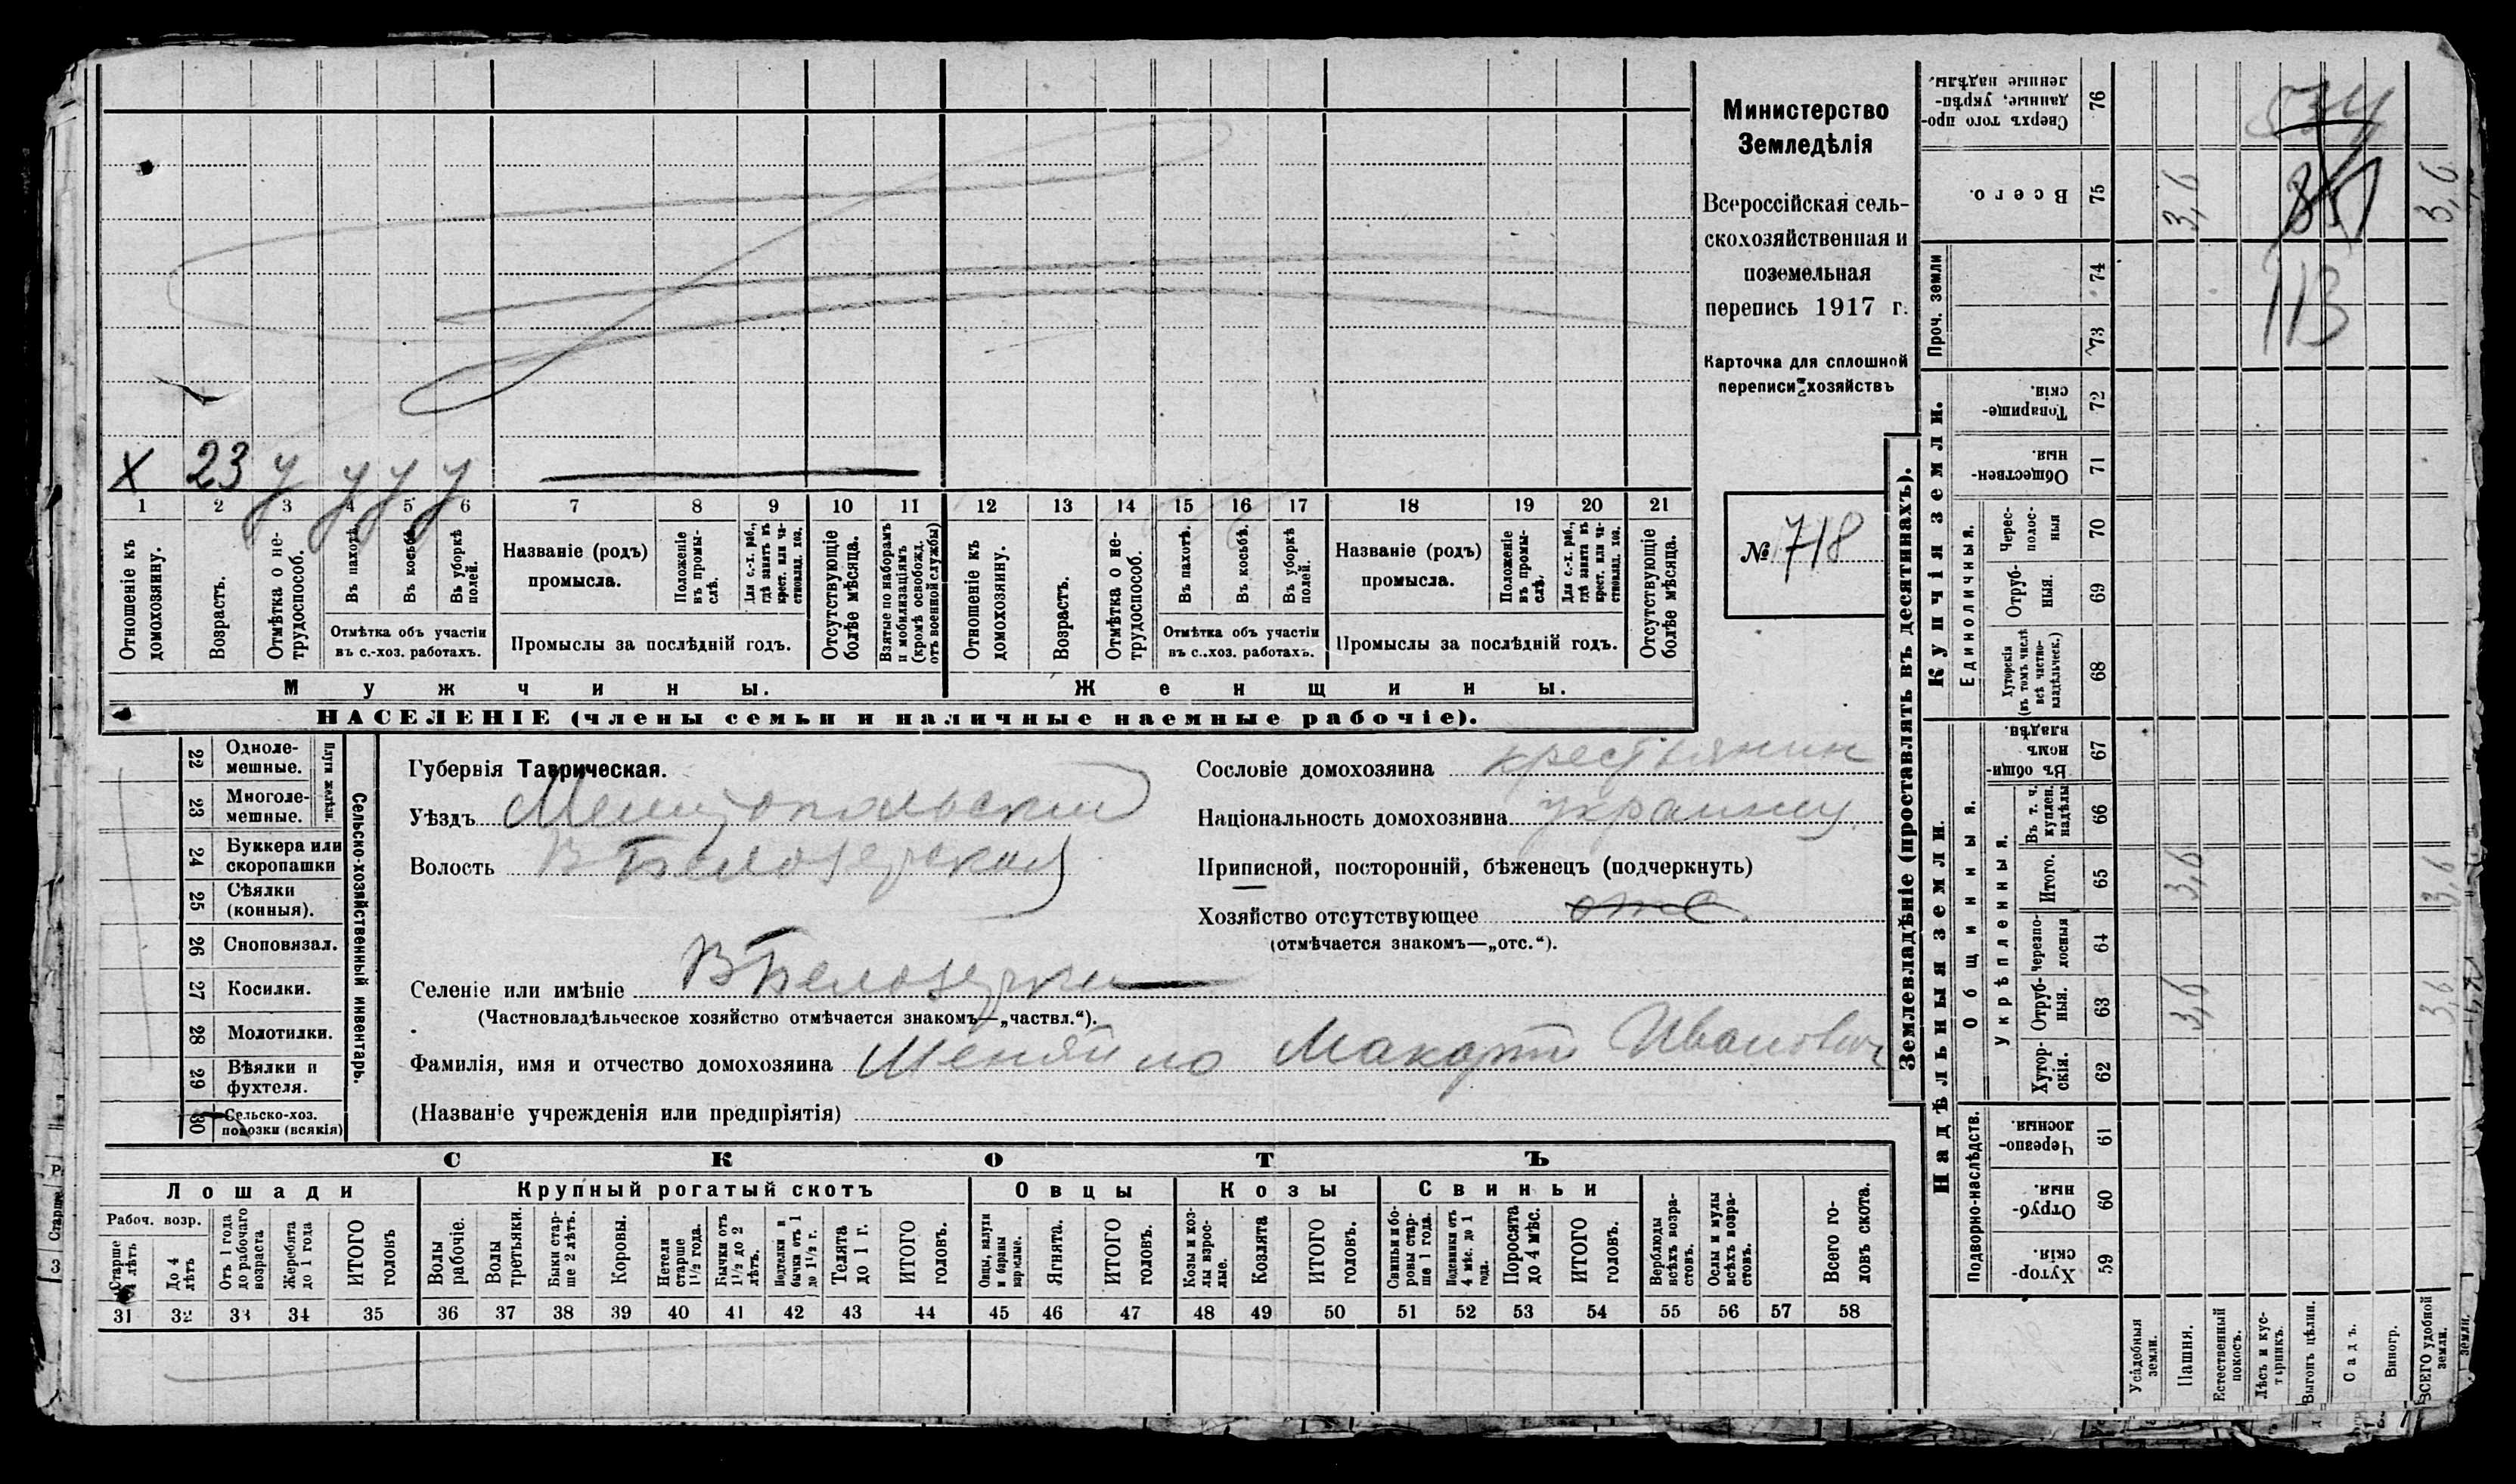 Министерство
Земледѣлія
Всероссійская сель-
скохозяйственная и
поземельная
перепись 1917 г.
Карточка для сплошной
переписи хозяйствъ
№ 718
X 23 у у у у
1 2 3 4 5 6 7 8 9 10 11 12 13 14 15 16 17 18 19 20 21
Отношеніе къ домохозяину.
Возрастъ.
Отмѣтка о не-трудоспособ.
Въ пахотѣ.
Въ косьбѣ.
Въ уборкѣ полей.
Отмѣтка объ участіи
въ с.-хоз. работахъ.
Названіе (родъ)
промысла.
Положеніе въ промы-слѣ.
Для с.-х. раб., гдѣ занятъ въ крест. или ча-стновлад. хоз.
Промыслы за послѣдній годъ.
Отсутствующіе болѣе мѣсяца.
Взятые по наборамъ и мобилизаціямъ (кромѣ освобожд. отъ военной службы)
Отношеніе къ домохозяину.
Возрастъ.
Отмѣтка о не-трудоспособ.
Въ пахотѣ.
Въ косьбѣ.
Въ уборкѣ полей.
Отмѣтка объ участіи
въ с..хоз. работахъ.
Названіе (родъ)
промысла.
Положеніе въ промы-слѣ.
Для с.-х. раб., гдѣ занята въ крест. или ча-стновлад. хоз.
Промыслы за послѣдній годъ.
Отсутствующіе болѣе мѣсяца.
Мужчины.
Женщины.
НАСЕЛЕНІЕ (члены семьи и наличные наемные рабочіе).
22 Одноле-мешные.
23 Многоле-мешные.
Плуги желѣзн.
24 Буккера или скоропашки
25 Сѣялки (конныя).
26 Сноповязал.
27 Косилки.
28 Молотилки.
29 Вѣялки и фухтеля.
30 Сельско-хоз. повозки (всякія)
Сельско-хозяйственный инвентарь.
Губернія Таврическая.
Уѣздъ Мелитопольский
Волость В Белозерская
Селеніе или имѣніе В Белозерка
(Частновладѣльческое хозяйство отмѣчается знакомъ—„частвл.“).
Фамилія, имя и отчество домохозяина Меняйло Макарт Иванович
(Названіе учрежденія или предпріятія)
Сословіе домохозяина крестьянин
Національность домохозяина украинц.
Приписной, посторонній, бѣженецъ (подчеркнуть)
Хозяйство отсутствующее отс.
(отмѣчается знакомъ—„отс.“).
СКОТЪ
Лошади
Рабоч. возр.
Старше 4 лѣтъ
До 4 лѣтъ
Отъ 1 года до рабочаго возраста
Жеребята до 1 года
ИТОГО головъ
Крупный рогатый скотъ
Волы рабочіе.
Волы третьяки.
Быки стар-ше 2 лѣтъ.
Коровы.
Нетели старше 1½ года.
Бычки отъ 1½ до 2 лѣтъ.
Подтелки и бычки отъ 1 до 1½ г.
Телята до 1 г.
ИТОГО головъ.
Овцы
Овцы, валухи и бараны взрослые.
Ягнята.
ИТОГО головъ.
Козы
Козы и коз-лы взрос-лые.
Козлята
ИТОГО головъ.
Свиньи
Свиньи и бо-ровы стар-ше 1 года.
Подсвинки отъ 4 мѣс. до 1 года.
Поросята до 4 мѣс.
ИТОГО головъ.
Верблюды всѣхъ возра-стовъ.
Ослы и мулы всѣхъ возра-стовъ.
Всего го-ловъ скота.
31 32 33 34 35 36 37 38 39 40 41 42 43 44 45 46 47 48 49 50 51 52 53 54 55 56 57 58
Землевладѣніе (проставлять въ десятинахъ).
Сверхъ того про-данные, укрѣп-ленные надѣлы. 76
534
Всего. 75 3,6 85 3,6
113
Проч. земли 74 73
Купчія земли.
Товарище-скія. 72
Обществен-ныя. 71
Единоличныя.
Черес-полос-ныя 70
Отруб-ныя. 69
Хуторскія (въ томъ числѣ всѣ частно-владѣльческ.) 68
Надѣльныя земли.
Общинныя.
Въ общин-номъ владѣн. 67
Укрѣпленныя.
Въ т. ч. куплен. надѣлы 66
Итого. 65 3,6 3,6
Черезпо-лосныя 64
Отруб-ныя. 63 3,6 3,6
Хутор-скія. 62
Подворно-наслѣдств.
Черезпо-лосныя. 61
Отруб-ныя. 60
Хутор-скія. 59
Усадебныя земли.
Пашня.
Естественный покосъ.
Лѣсъ и кус-тарникъ.
Выгонъ цѣлин.
Садъ.
Виногр.
ВСЕГО удобной земли.
земли.